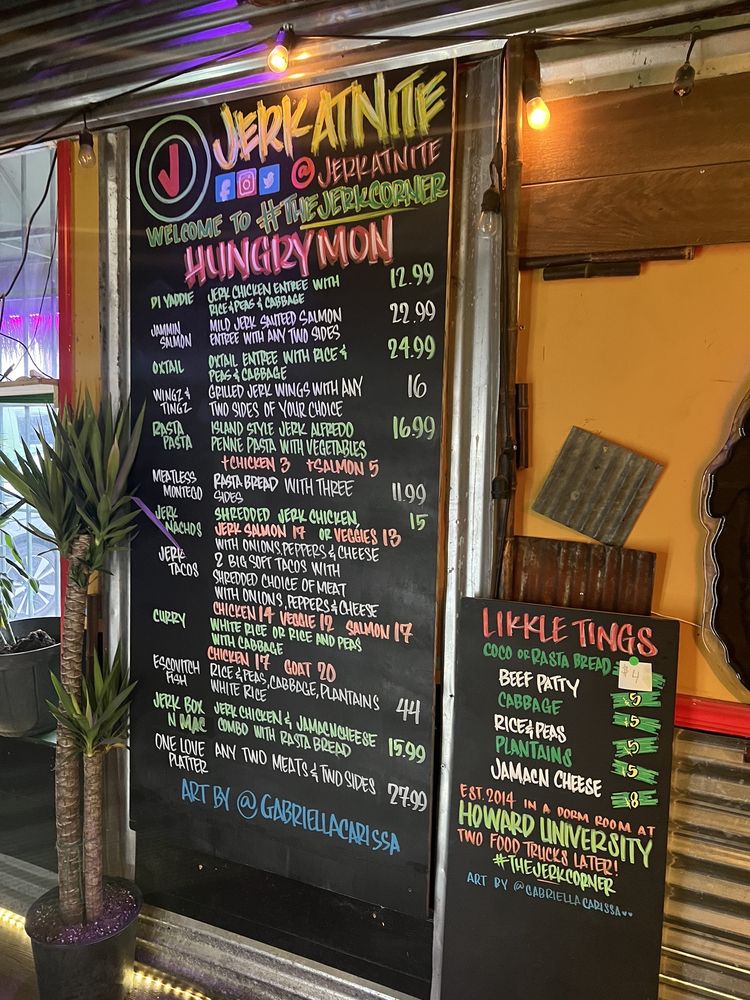 J
JERKATNITE
@JERKATNITE
WELCOME TO #THEJERKCORNER
HUNGRY MON
DI YADDIE JERK CHICKEN ENTREE WITH 12.99
RICE & PEAS & CABBAGE
JAMMIN MILD JERK SAUTEED SALMON 22.99
SALMON ENTREE WITH ANY TWO SIDES
OXTAIL OXTAIL ENTREE WITH RICE & 24.99
PEAS & CABBAGE
WINGZ & GRILLED JERK WINGS WITH ANY 16
TINGZ TWO SIDES OF YOUR CHOICE
RASTA ISLAND STYLE JERK ALFREDO 16.99
PASTA PENNE PASTA WITH VEGETABLES
+CHICKEN 3 +SALMON 5
MEATLESS RASTA BREAD WITH THREE 11.99
MONTEGO SIDES
JERK SHREDDED JERK CHICKEN, 15
NACHOS JERK SALMON 17 OR VEGGIES 13
WITH ONIONS, PEPPERS & CHEESE
JERK 2 BIG SOFT TACOS WITH
TACOS SHREDDED CHOICE OF MEAT
WITH ONIONS, PEPPERS & CHEESE
CHICKEN 14 VEGGIE 12 SALMON 17
CURRY WHITE RICE OR RICE AND PEAS
WITH CABBAGE
CHICKEN 17 GOAT 20
ESCOVITCH RICE & PEAS, CABBAGE, PLANTAINS 44
FISH WHITE RICE
JERK BOX JERK CHICKEN & JAMACNCHEESE 15.99
N MAC COMBO WITH RASTA BREAD
ONE LOVE ANY TWO MEATS & TWO SIDES 27.99
PLATTER
ART BY @GABRIELLACARISSA
LIKKLE TINGS
COCO OR RASTA BREAD $4
BEEF PATTY $5
CABBAGE $5
RICE & PEAS $5
PLANTAINS $5
JAMACN CHEESE $8
EST. 2014 IN A DORM ROOM AT
HOWARD UNIVERSITY
TWO FOOD TRUCKS LATER!
#THEJERKCORNER
ART BY @GABRIELLACARISSA